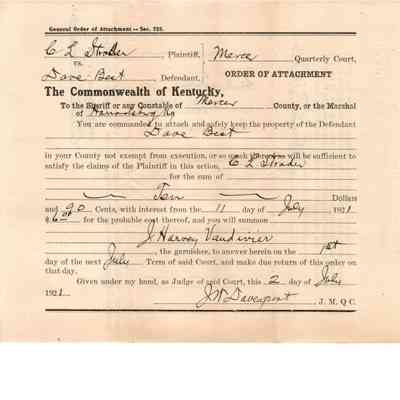 General Order of Attachment—Sec. 225.
C L Strader Plaintiff, Mercer Quarterly Court,
vs.
Dave Best Defendant, ORDER OF ATTACHMENT
The Commonwealth of Kentucky,
To the Sheriff or any Constable of Mercer County, or the Marshal
of Harrodsburg Ky
You are commanded to attach and safely keep the property of the Defendant
Dave Best
in your County not exempt from execution, or so much thereof as will be sufficient to
satisfy the claims of the Plaintiff in this action, C L Strader
for the sum of
Ten Dollars
and 90 Cents, with interest from the 11 day of July 1921
$6.00 for the probable cost thereof, and you will summon
J. Harvey Vandivier
, the garnishee, to answer herein on the 1st
day of the next July Term of said Court, and make due return of this order on
that day.
Given under my hand, as Judge of said Court, this 2 day of July
1921.
J W Davenport J. M. Q. C.